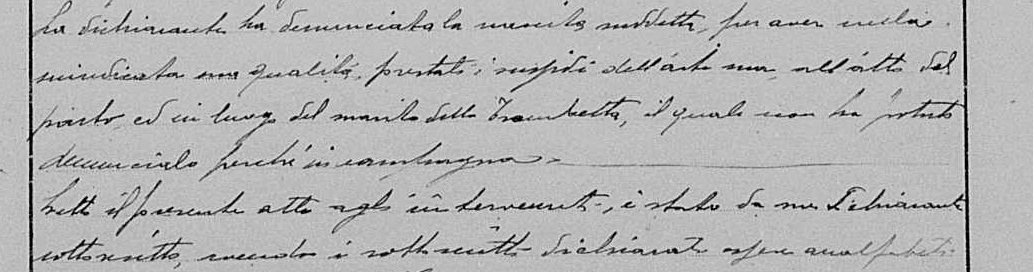 La dichiarante ha denunciata la nascita suddetta, per aver nella
suindicata sua qualità, prestati i sussidi dell'arte sua, all'atto del
parto, ed in luogo del marito della Trombetta, il quale non ha potuto
denunciarlo perché in campagna.
Letto il presente atto agli intervenuti, è stato da me
sottoscritto, avendo i dichiarato essere analfabeti